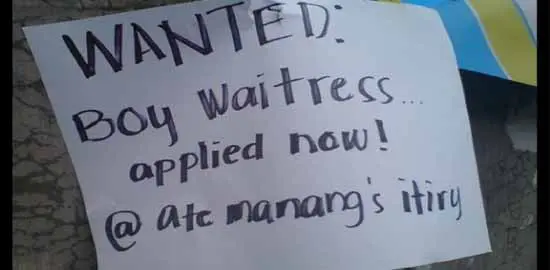 WANTED:
Boy Waitress...
applied now!
@ ate manang's itiry